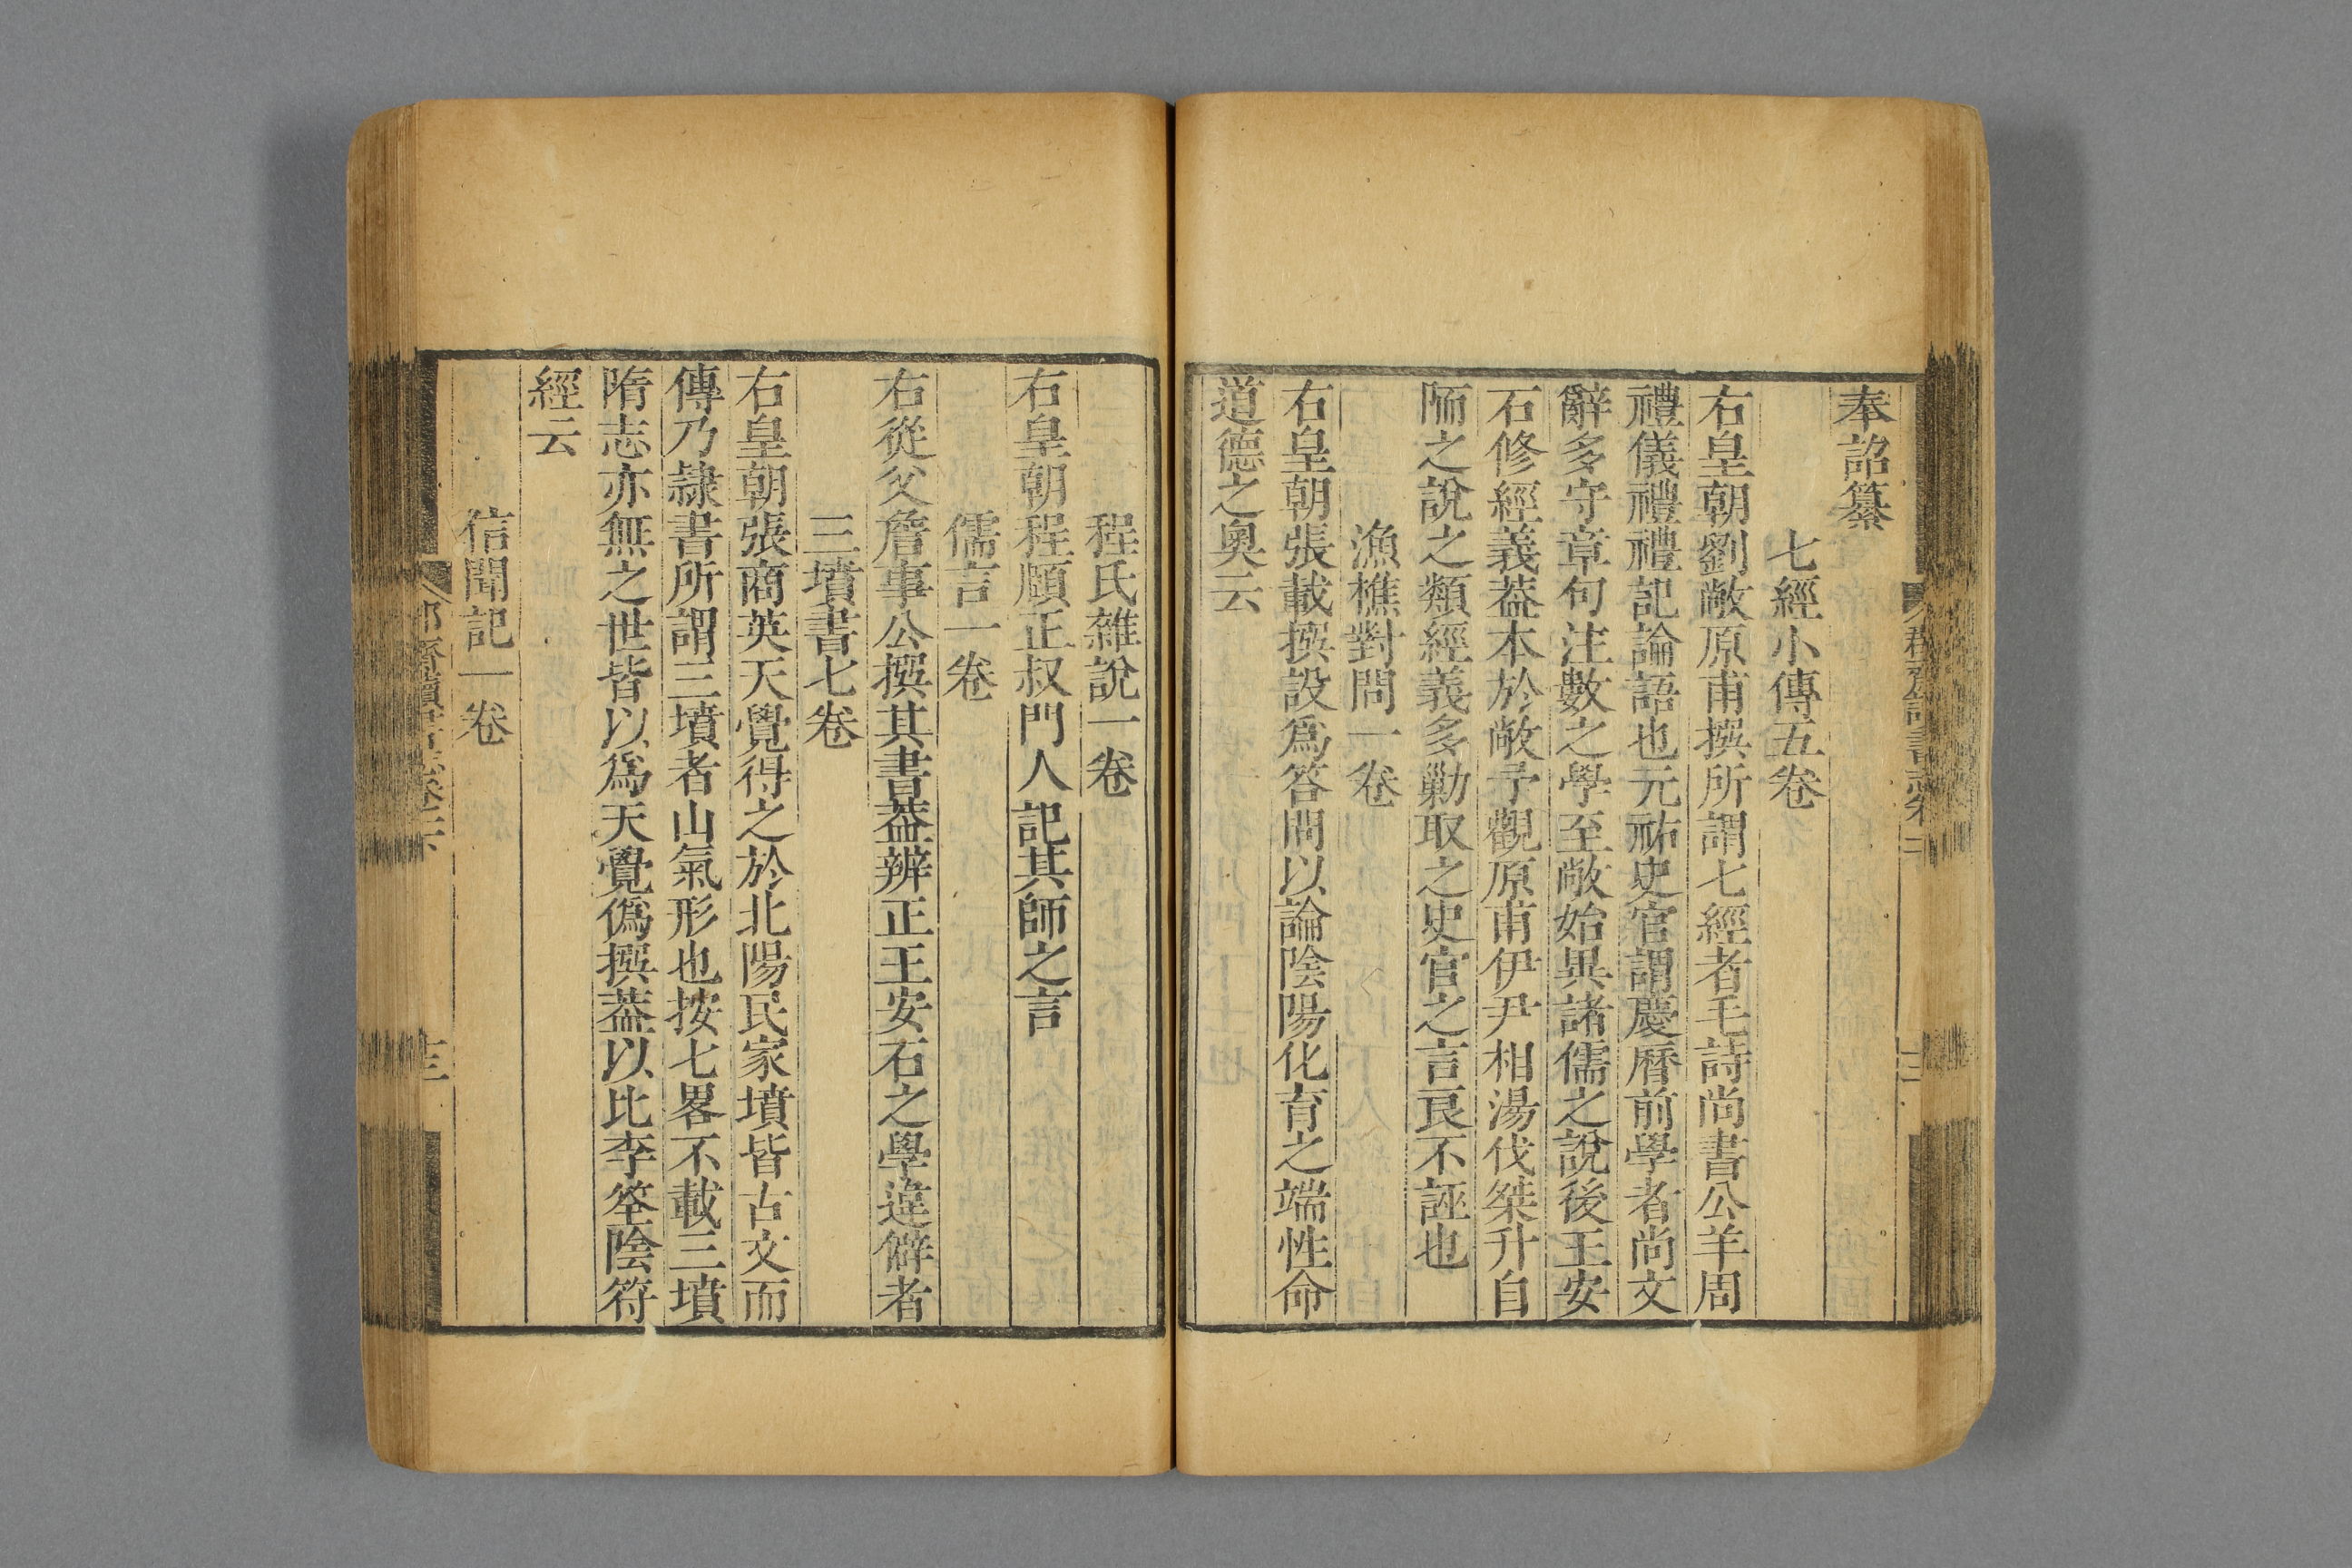 奉詔纂
七經小傳五卷
右皇朝劉敞原甫撰所謂七經者毛詩尚書公羊周
禮儀禮禮記論語也元祐史官謂慶曆前學者尚文
辭多守章句注數之學至敞始異諸儒之說後王安
石修經義葢本於敞予觀原甫伊尹相湯伐桀升自
陑之說之類經義多勦取之史官之言良不誣也
漁樵對問一卷
右皇朝張載撰設爲答問以論陰陽化育之端性命
道德之奥云
程氏雜說一卷
右皇朝程頤正叔門人記其師之言
儒言一卷
右從父詹事公撰其書葢辨正王安石之學違僻者
三墳書七卷
右皇朝張商英天覺得之於北陽民家墳皆古文而
傳乃隷書所謂三墳者山氣形也按七畧不載三墳
隋志亦無之世皆以爲天覺僞撰葢以比李筌陰符
經云
信聞記一卷